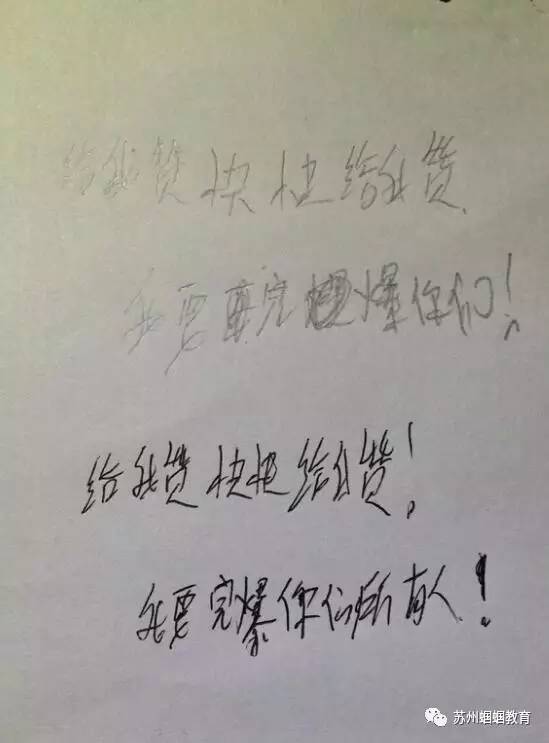 给我赞快快给我赞
我要要完爆爆你们!
给我赞快快给我赞!
我要完爆你们所有人!
苏州蝈蝈教育